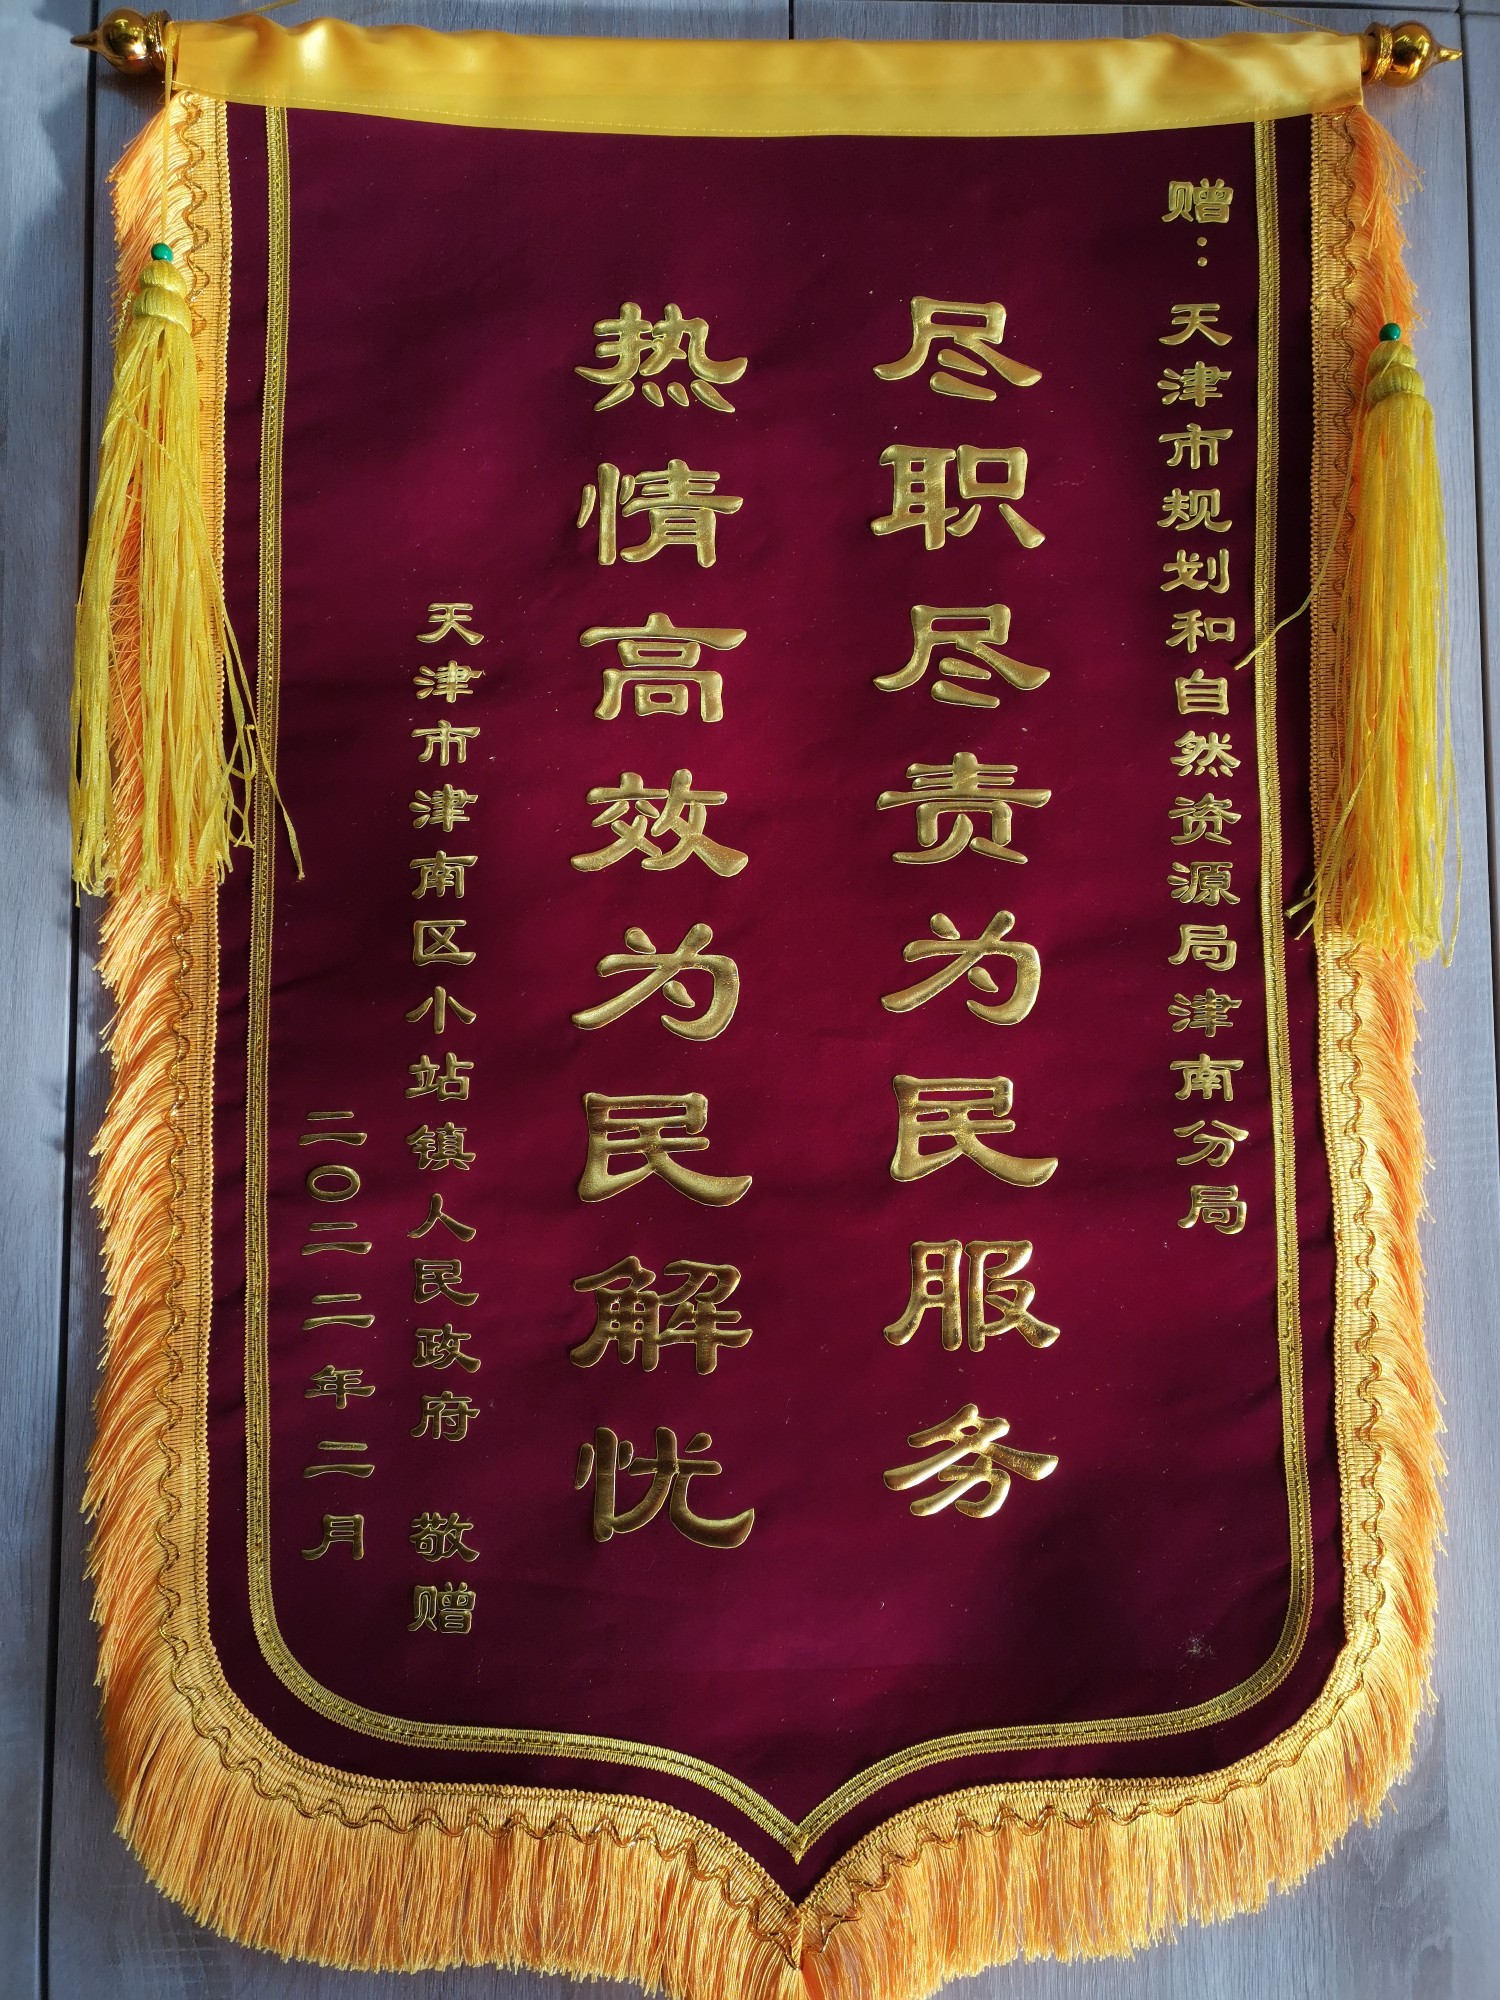 赠：天津市规划和自然资源局津南分局
尽职尽责为民服务
热情高效为民解忧
天津市津南区小站镇人民政府 敬赠
二〇二二年二月